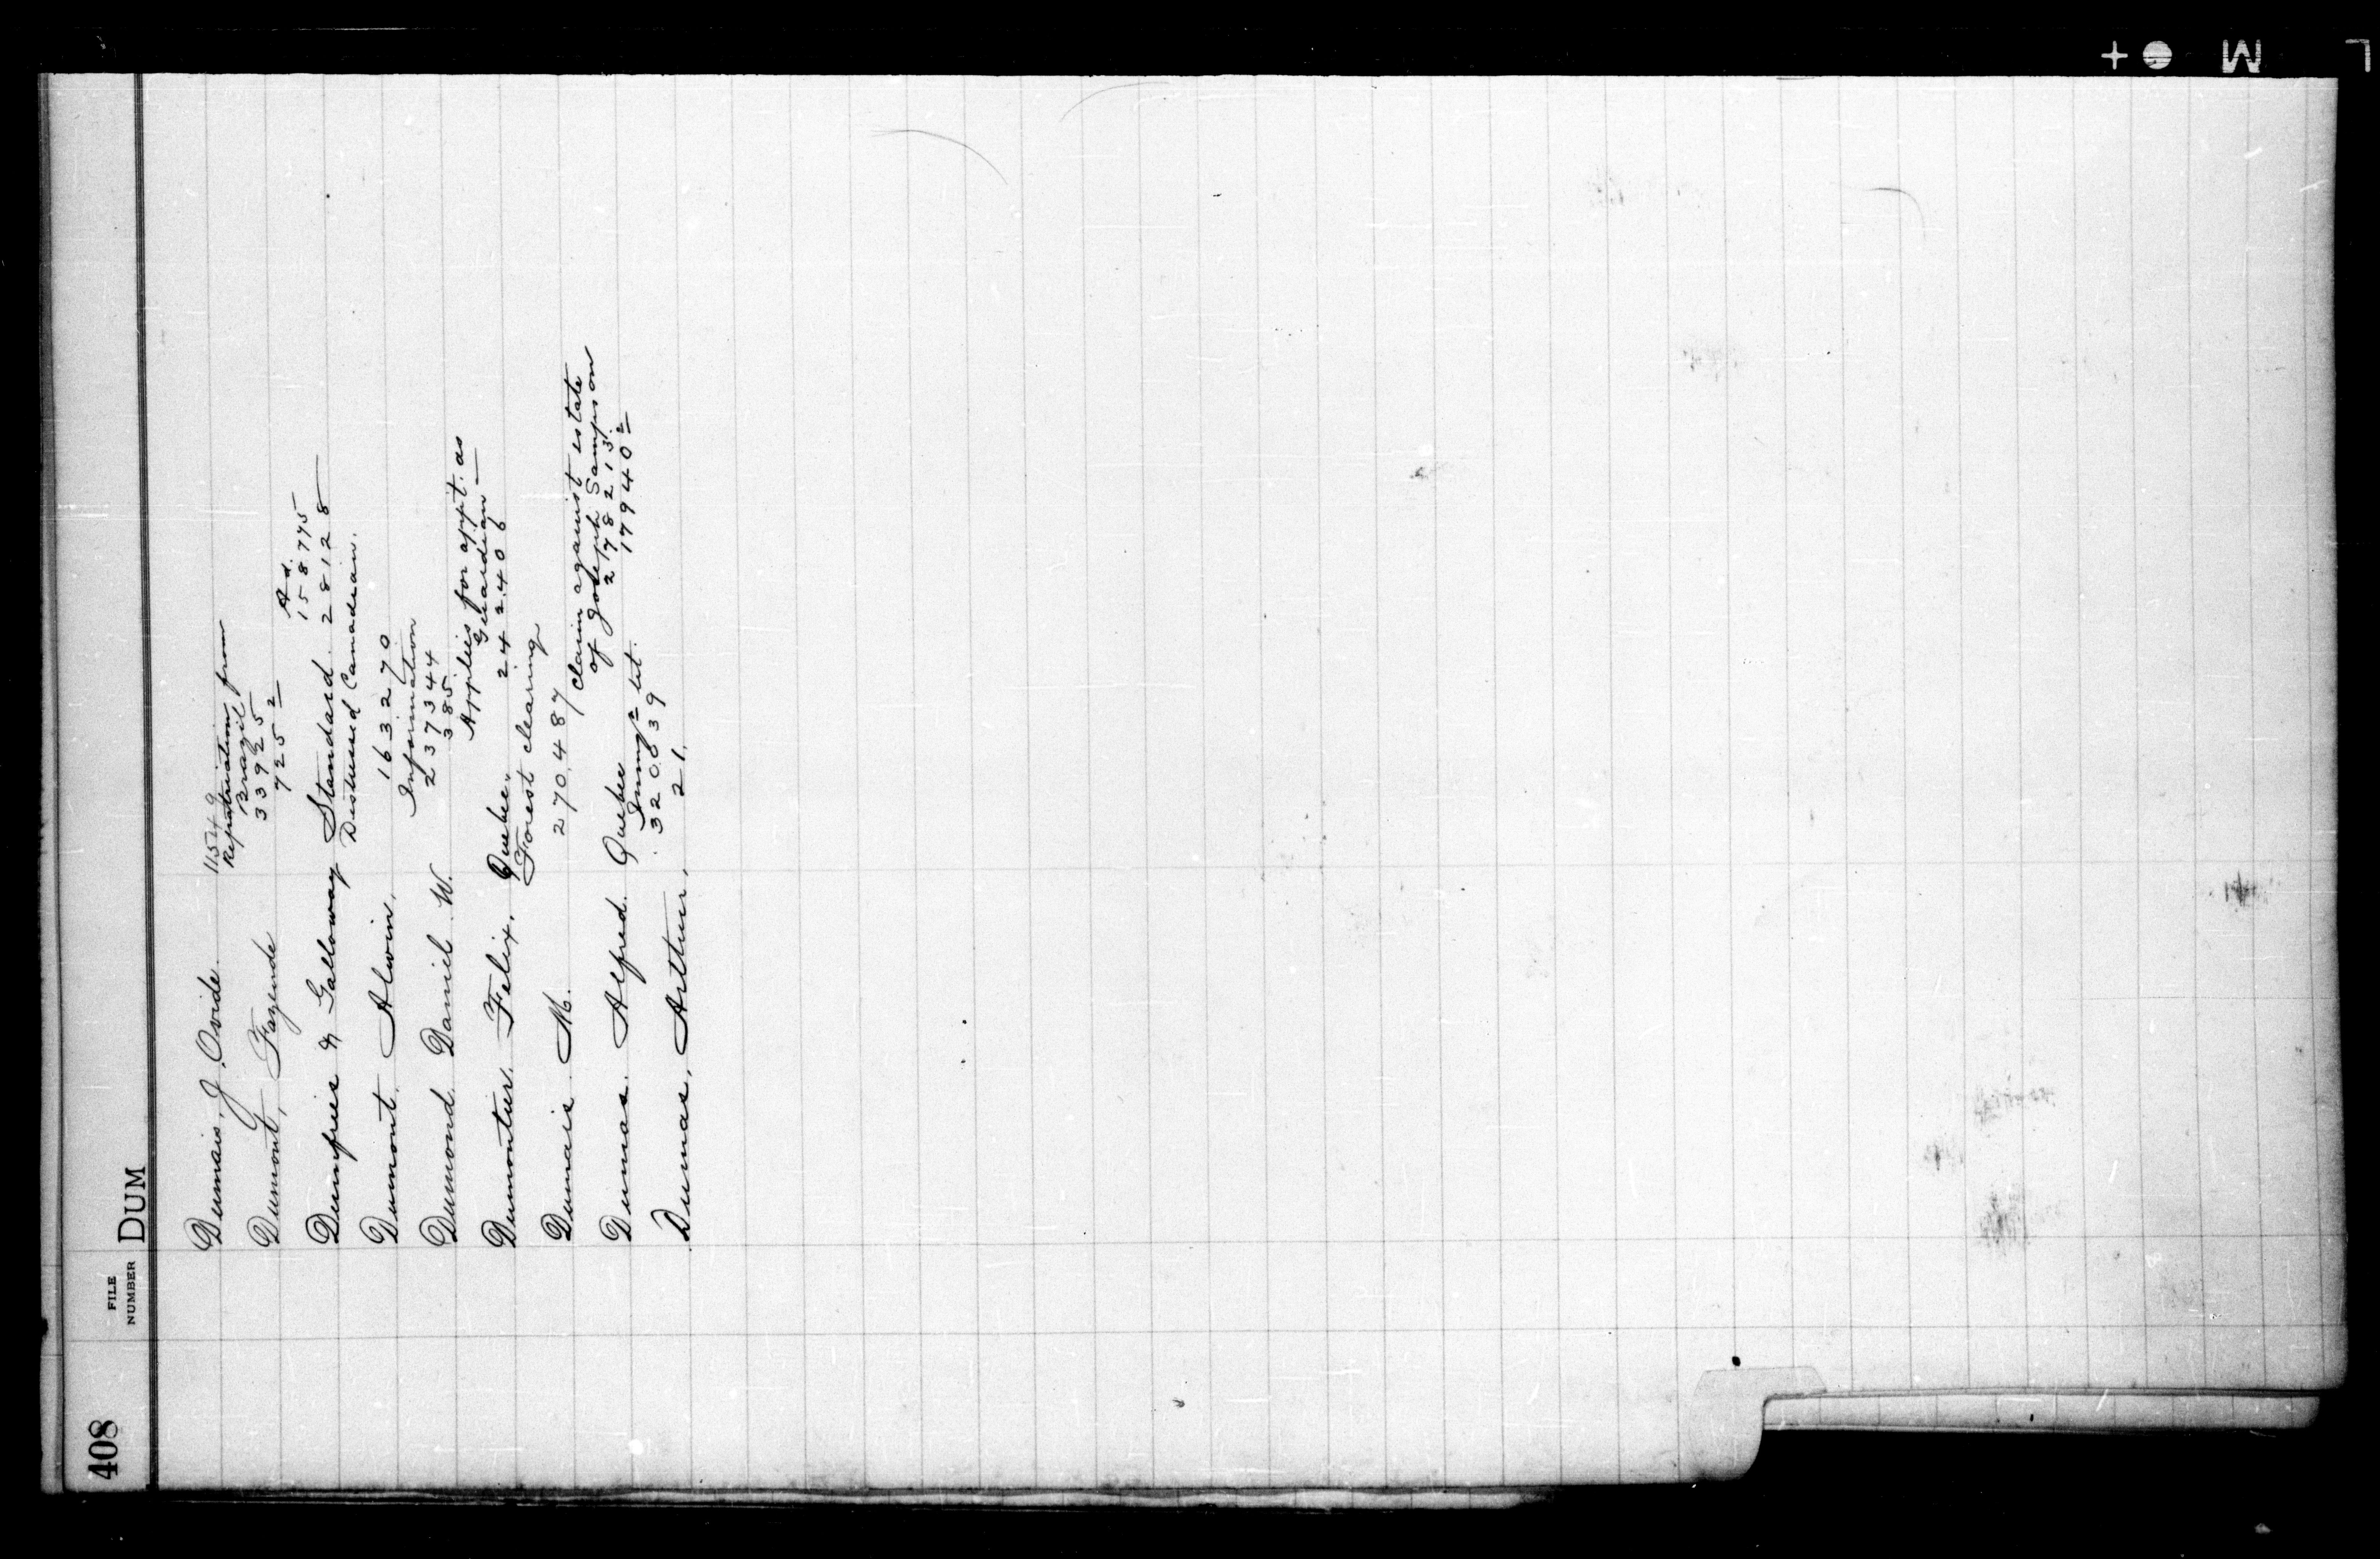 408
FILE NUMBER DUM
Dumais, J. Ovide. 115249
Repatriation from
Brazil
Dumont, Fazende 33925
725²
Ad.
158775
Dumfries & Galloway Standard. 28128
Distressed Canadian.
Dumont, Alwin, 163270
Information
Dumond Daniel W. 237344
385.
Applies for appt. as
Guardian
Dumontier, Felix, Quebec. 242406
Forest clearing
Dumais M. 270487
claim against estate
of Joseph Sampson
Dumas. Alfred. Quebec 278213.
Immgn lit. 179402
320839
Dumas, Arthur, 21.
L M +